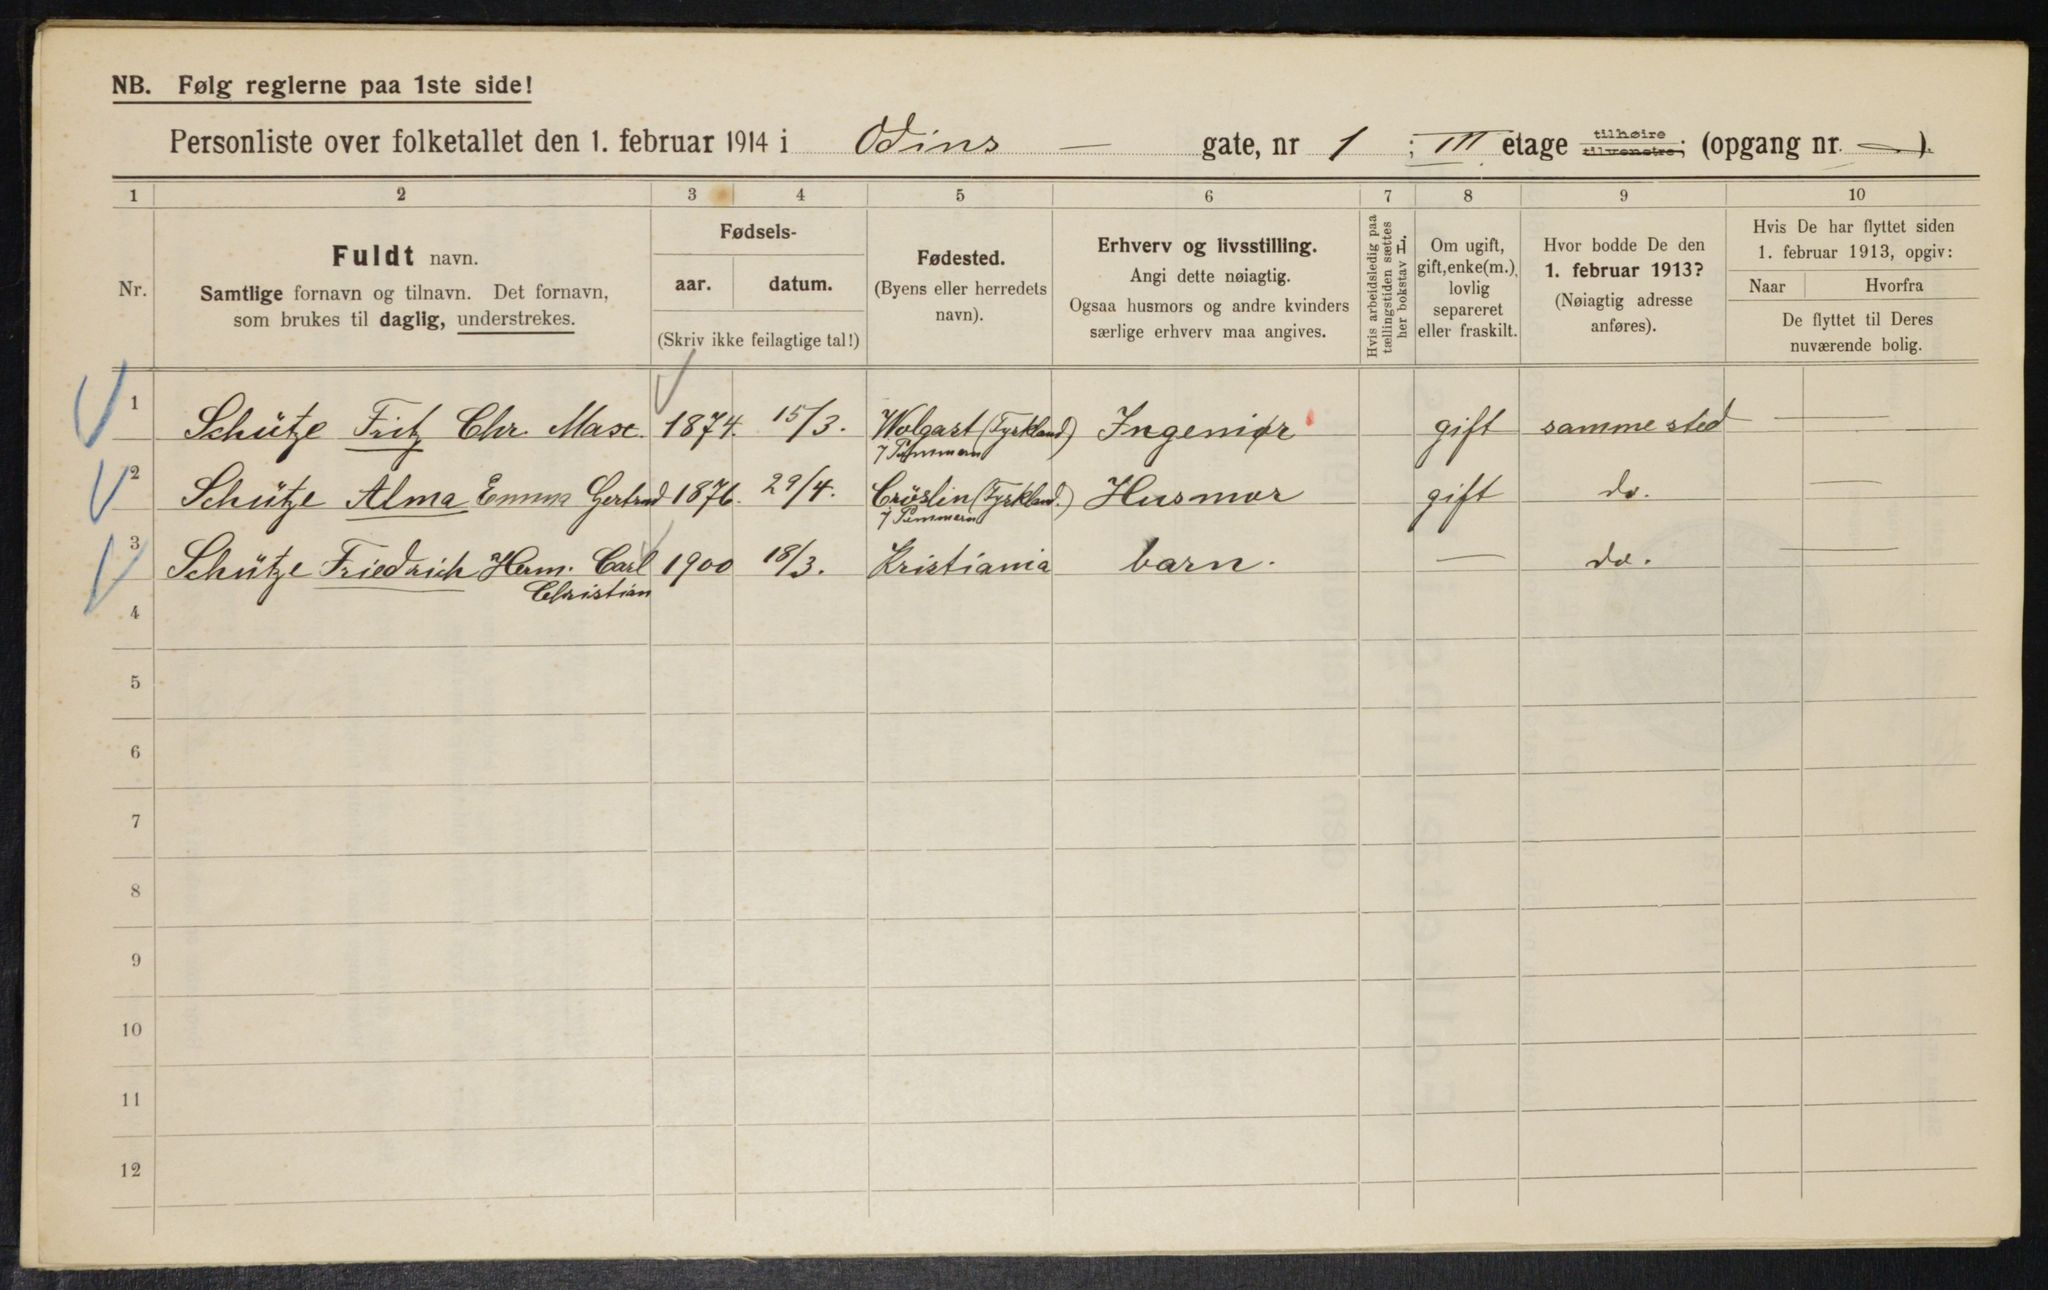 NB. Følg reglerne paa 1ste side!
Personliste over folketallet den 1. februar 1914 i Odins — gate, nr 1 ; III etage tilhøire tilvenstre; (opgang nr. — ).
1 2 3 4 5 6 7 8 9 10
Nr.
Fuldt navn.
Samtlige fornavn og tilnavn. Det fornavn,
som brukes til daglig, understrekes.
Fødsels-
aar. datum.
(Skriv ikke feilagtige tal!)
Fødested.
(Byens eller herredets
navn).
Erhverv og livsstilling.
Angi dette nøiagtig.
Ogsaa husmors og andre kvinders
særlige erhverv maa angives.
Hvis arbeidsledig paa
tællingstiden sættes
her bokstav L.
Om ugift,
gift, enke(m.),
lovlig
separeret
eller fraskilt.
Hvor bodde De den
1. februar 1913?
(Nøiagtig adresse
anføres).
Hvis De har flyttet siden
1. februar 1913, opgiv:
Naar Hvorfra
De flyttet til Deres
nuværende bolig.
1 Schütze Fritz Chr. Max. 1874. 15/3. Wolgast (Tyskland) Ingeniør gift samme sted —
Pommern
2 Schütze Alma Emma Gertrud 1876. 29/4. Cröslin (Tyskland.) Husmor gift do. —
Pommern
3 Schütze Friedrich Herm. Carl 1900 18/3. Kristiania barn. — do. —
Christian
4
5
6
7
8
9
10
11
12